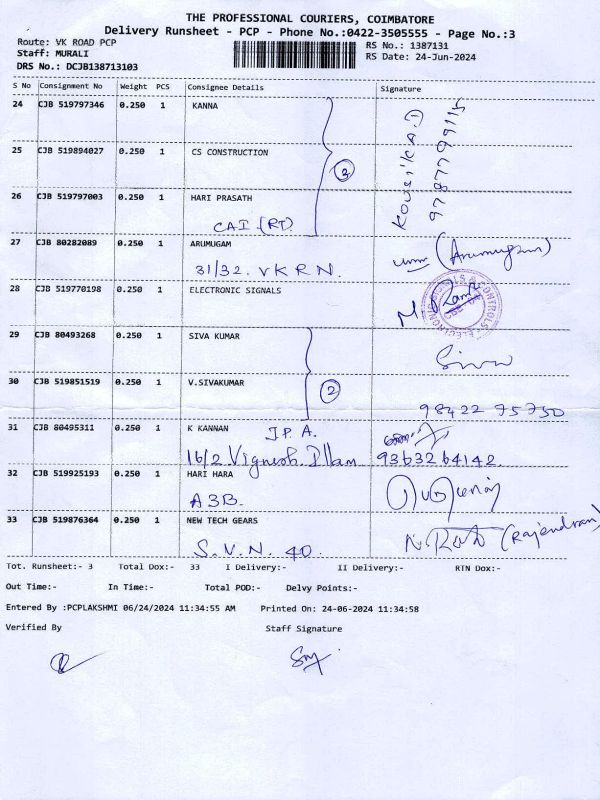 THE PROFESSIONAL COURIERS, COIMBATORE
Delivery Runsheet - PCP - Phone No.:0422-3505555 - Page No.:3
Route: VK ROAD PCP
RS No.: 1387131
Staff: MURALI
RS Date: 24-Jun-2024
DRS No.: DCJB138713103
S No Consignment No Weight PCS Consignee Details Signature
24 CJB 519797346 0.250 1 KANNA
Kousik A.D
9787799115
25 CJB 519894027 0.250 1 CS CONSTRUCTION
3
26 CJB 519797003 0.250 1 HARI PRASATH
CAI (RT)
27 CJB 80282089 0.250 1 ARUMUGAM
31/32. V K R N.
(Arumugam)
28 CJB 519770198 0.250 1 ELECTRONIC SIGNALS
29 CJB 80493268 0.250 1 SIVA KUMAR
Siva
30 CJB 519851519 0.250 1 V.SIVAKUMAR
2
98422 75750
31 CJB 80495311 0.250 1 K KANNAN
J.P. A.
16/2 Vignesh Illam 9363264142
32 CJB 519925193 0.250 1 HARI HARA
A3B.
33 CJB 519876364 0.250 1 NEW TECH GEARS
S. V. N. 40.
(Rajendran)
Tot. Runsheet:- 3 Total Dox:- 33 I Delivery:- II Delivery:- RTN Dox:-
Out Time:- In Time:- Total POD:- Delvy Points:-
Entered By :PCPLAKSHMI 06/24/2024 11:34:55 AM Printed On: 24-06-2024 11:34:58
Verified By Staff Signature